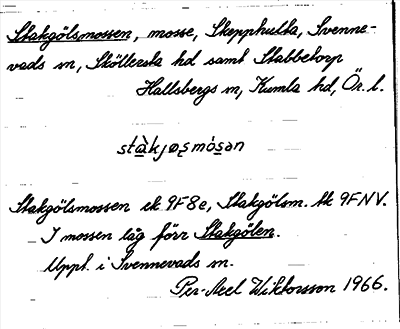 Stakgölsmossen, mosse, Skepphulta, Svenne-
vads sn, Sköllersta hd samt Stabbetorp
Hallsbergs sn, Kumla hd, Ör. l.
stàkjøsmósən
Stakgölsmossen ek 9F8e, Stakgölsm. tk 9FNV.
I mossen låg förr Stakgölen.
Uppt. i Svennevads sn.
Per-Axel Wiktorsson 1966.